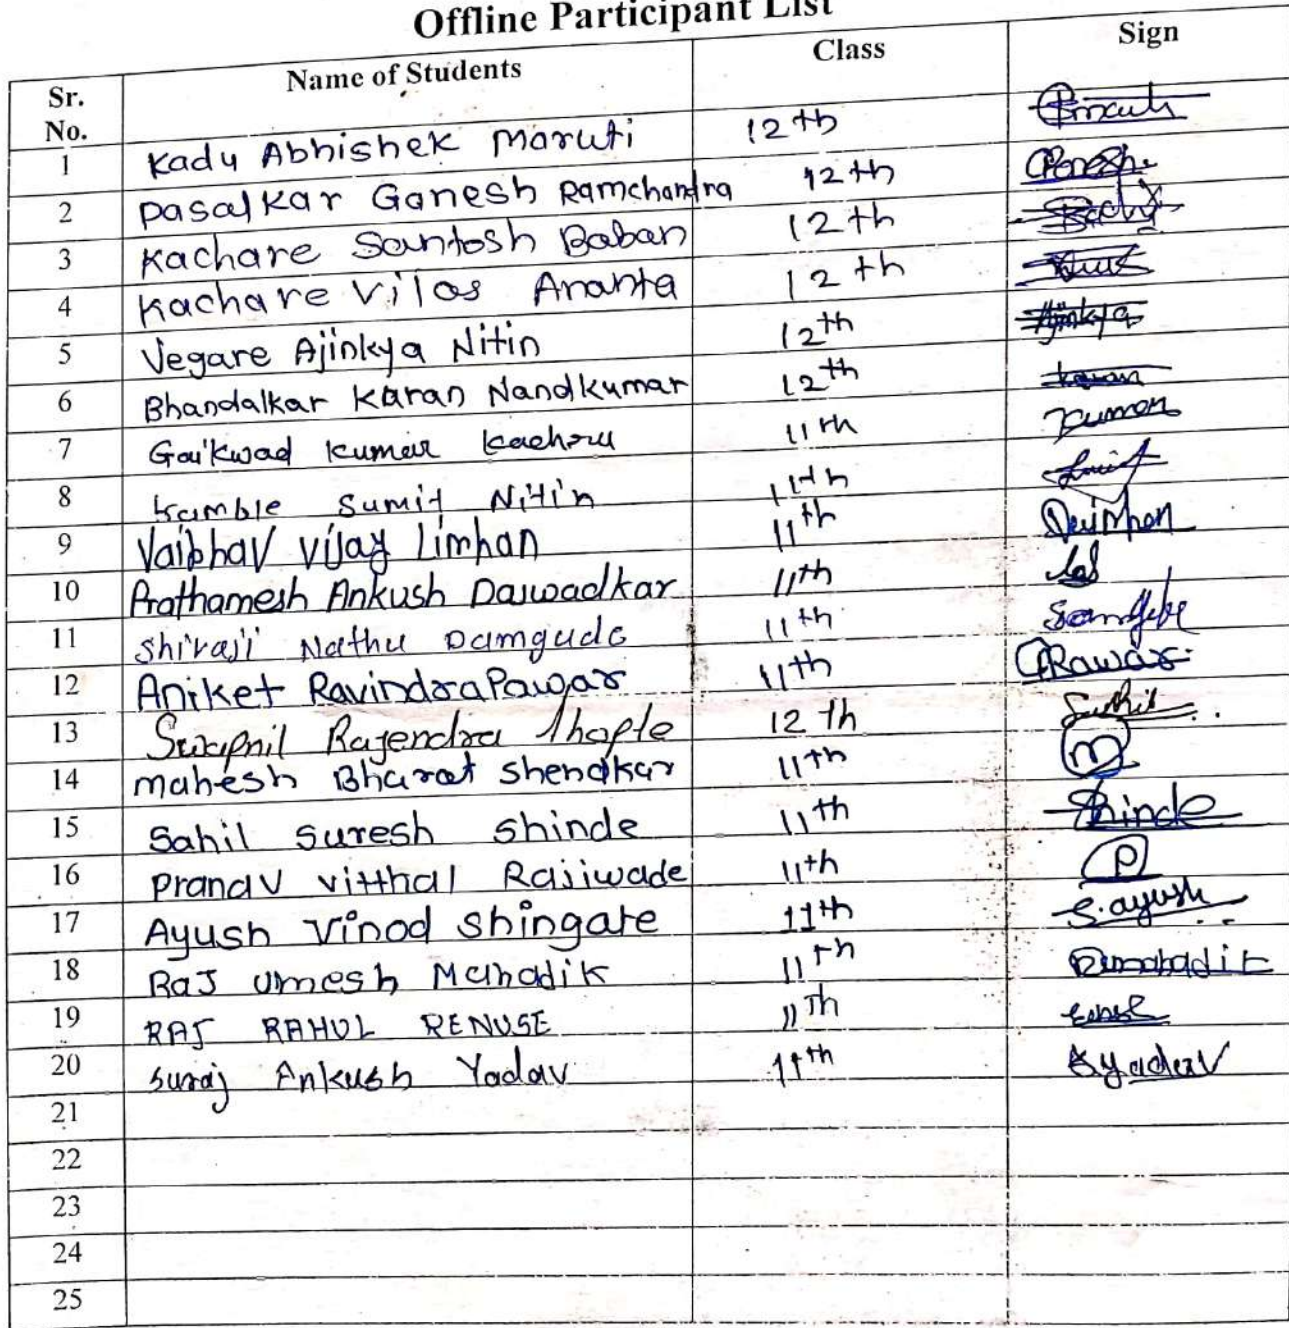 Offline Participant List
Sr. No. Name of Students Class Sign
1 Kadu Abhishek Maruti 12th
2 Pasalkar Ganesh Ramchandra 12th
3 Kachare Santosh Baban 12th
4 Kachare Vilas Ananta 12th
5 Vegare Ajinkya Nitin 12th Ajinkya
6 Bhandalkar Karan Nandkumar 12th Karan
7 Gaikwad Kumar Kacharu 11th Kumar
8 Kamble Sumit Nitin 11th
9 Vaibhav Vijay Limhan 11th
10 Prathamesh Ankush Dawadkar 11th
11 Shivaji Nathu Damgude 11th
12 Aniket Ravindra Pawar 11th
13 Swapnil Rajendra Thopte 12th
14 mahesh Bharat Shendkar 11th
15 Sahil Suresh Shinde 11th Shinde
16 Pranav vitthal Rajiwade 11th P
17 Ayush Vinod Shingate 11th S.ayush
18 Raj Umesh Mahadik 11th Rumahadik
19 RAJ RAHUL RENUSE 11Th
20 Suraj Ankush Yadav 11th
21
22
23
24
25